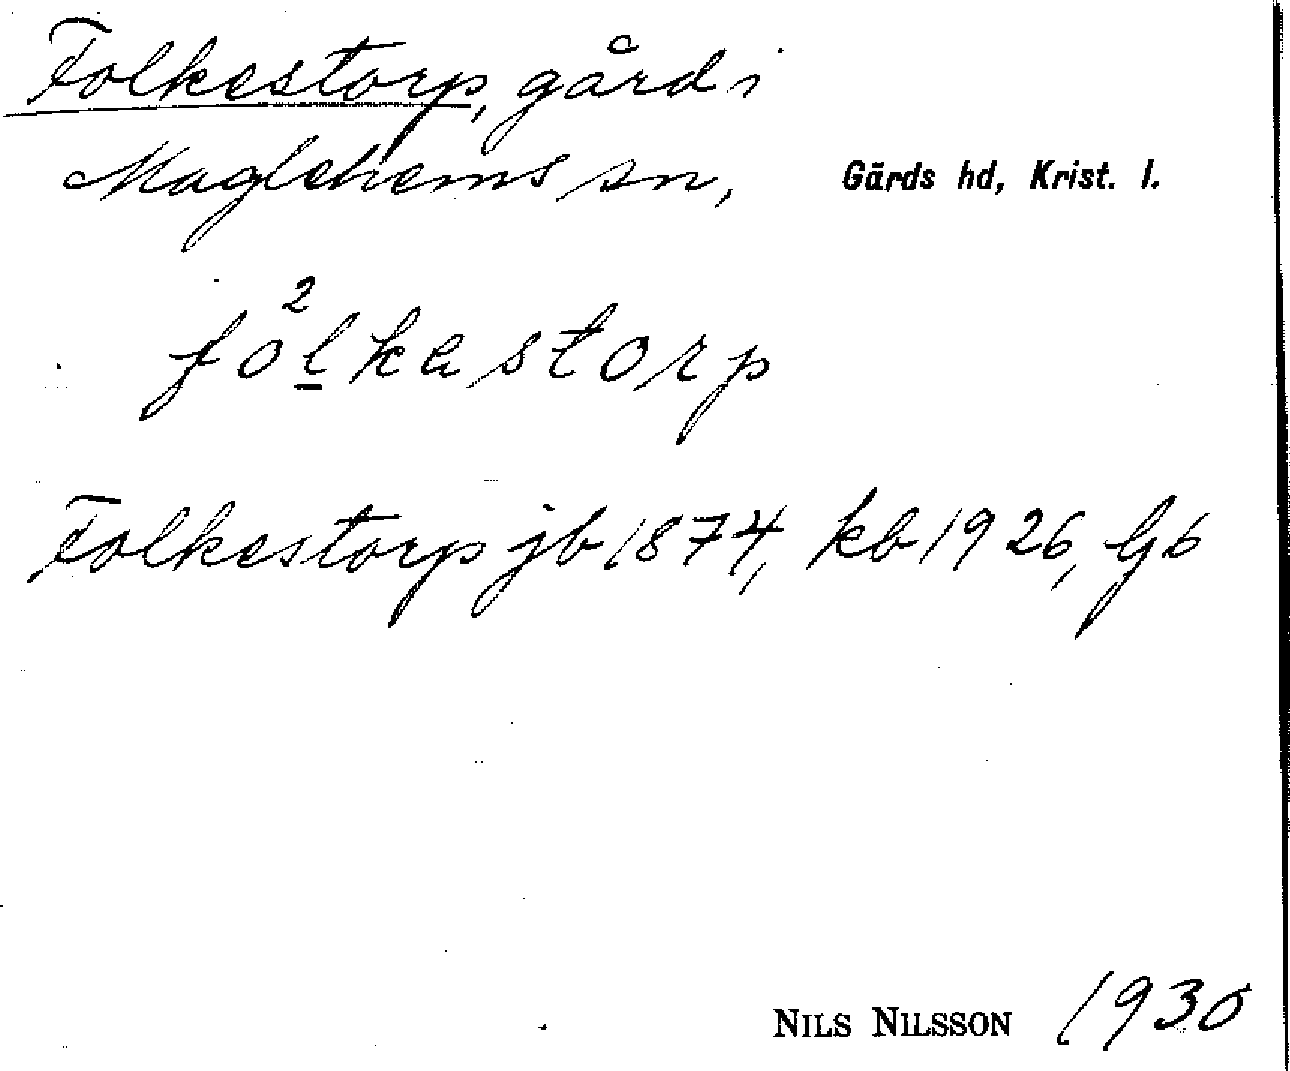 Folkestorp, gård i
Maglehems sn, Gärds hd, Krist. l.
2
folkastorp
Folkestorp jb 1874, kb 1926, Gb
NILS NILSSON 1930